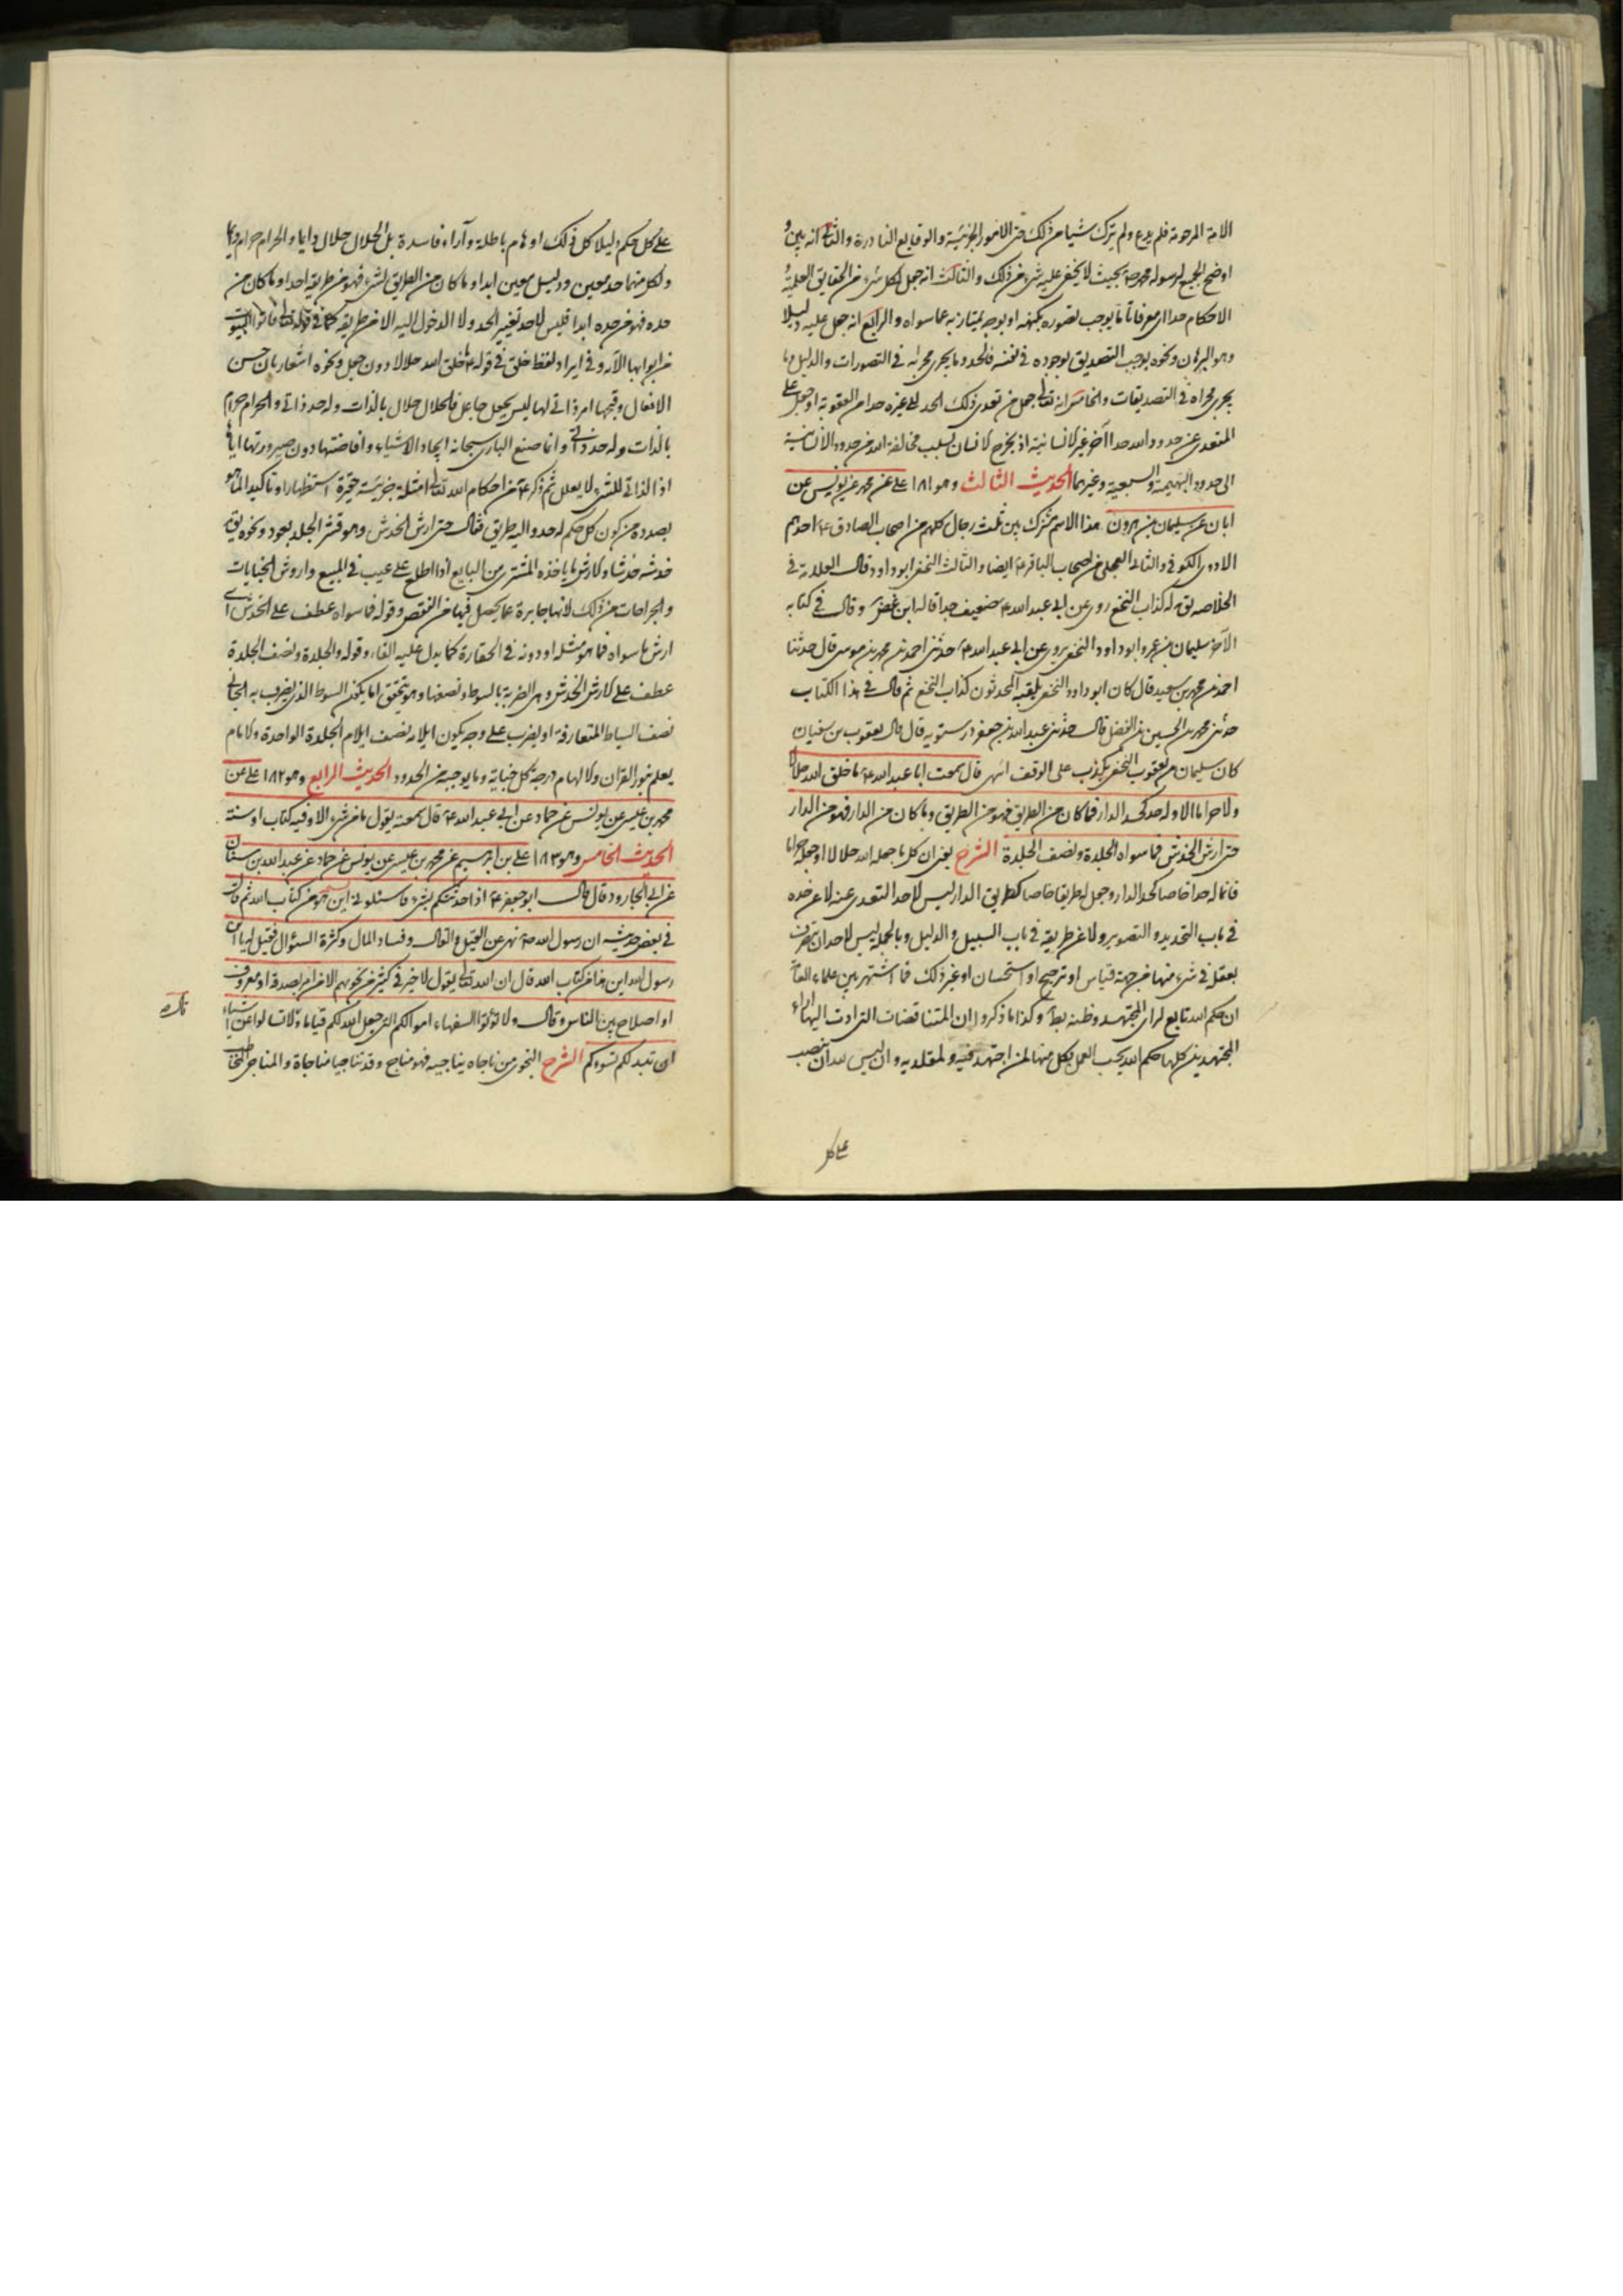 الامة المرحومة فلم يدع ولم يترك شيئا من ذلك حتى الامور الجزئية والوقايع النادرة والثانى انه بين و
اوضح الجميع لرسوله محمد ص بحيث لا يخفى عليه شىء من ذلك والثالث انه جعل لكل شىء من الحقايق العلمية و
الاحكام حدا اى معرفا تاما يوجب تصوره بكنهه او بوجه يمتاز به عما سواه والرابع انه جعل عليه دليلا
وهو البرهان ونحوه يوجب التصديق بوجوده فى نفسه فالحد وما يجرى مجراه فى التصورات والدليل وما
يجرى مجراه فى التصديقات والخامس انه تعالى جعل من تعدى ذلك الحد الى غيره حدا من العقوبة او جعل على
المتعدى عن حدود الله حدا آخر غير الانسانية اذ يخرج الانسان بسبب مخالفة الله من حدود الانسانية
الى حدود البهيمية والسبعية وغيرهما الحديث الثالث وهو ١٨١ على عن محمد عن يونس عن
ابان عن سليمان بن هرون هذا الاسم مشترك بين ثلث رجال كلهم من اصحاب الصادق ع احدهم
الازدى الكوفى والثانى العجلى من اصحاب الباقر ع ايضا والثالث النخعى ابو داود قال العلامة فى
الخلاصه يق له كذاب النخع روى عن ابى عبد الله ع ضعيف جدا قاله ابن غضر وقال فى كتابه
الآخر سليمان بن عمرو ابو داود النخعى يروى عن ابى عبد الله ع حدثنى احمد بن محمد بن موسى قال حدثنا
احمد بن محمد بن سعيد قال كان ابو داود النخعى يلقبه المحدثون كذاب النخع ثم قال فى هذا الكتاب
حدثنى محمد بن الحسين بن الفضل قال حدثنى عبد الله بن جعفر درستويه قال قال يعقوب بن سفيان
كان سليمان بن يعقوب النخعى يكذب على الوقف انتهى قال سمعت ابا عبد الله ع ما خلق الله حلالا
ولا حراما الا وله حد كحد الدار فما كان من الطريق فهو من الطريق وما كان من الدار فهو من الدار
حتى ارش الخدش فما سواه والجلدة ونصف الجلدة الشرح يعنى ان كل ما جعله الله حلالا او جعله حراما
فانما له حدا خاصا كحد الدار وجعل له طريقا خاصا كطريق الدار ليس لاحد التعدى عنه لا عن حده
فى باب التحديد والتصوير ولا عن طريقه فى باب السبيل والدليل وبالجملة ليس لاحد ان يتصرف
بعقله فى شىء منها من جهة قياس او ترجيح او استحسان او غير ذلك فما اشتهر بين علماء العامة
ان حكم الله تابع لراى المجتهد وظنه بط وكذا ما ذكروا ان المتناقضات التى ادت اليها اراء
المجتهدين كلها حكم الله يجب العمل بكل منها لمن اجتهد فيه ولمقلديه وان ليس لله ان ينصب
على كل
على كل حكم دليلا كل ذلك اوهام باطلة وآراء فاسدة بل الحلال حلال دايما والحرام حرام دايما
ولكل منهما حد معين ودليل معين ابدا وما كان من الطريق لشىء فهو من طريقه ابدا وما كان من
حده فهو من حده ابدا فليس لاحد تغيير الحد ولا الدخول اليه الا من طريقه كما فى قوله تعالى فاتوا البيوت
من ابوابها الآية وفى ايراد لفظ خلق فى قوله ع ما خلق الله حلالا دون جعل ونحوه اشعار بان حسن
الافعال وقبحها امر ذاتى لها ليس بجعل جاعل فالحلال حلال بالذات وله حد ذاتى والحرام حرام
بالذات وله حد ذاتى وانما صنع البارى سبحانه ايجاد الاشياء وافاضتها دون صيرورتها اياها
اذ الذاتى للشىء لا يعلل ثم ذكر ع من احكام الله تعالى امثلة جزئية حقيرة استظهارا وتاكيدا لما هو
بصدده من كون كل حكم له حد واليه طريق فقال حتى ارش الخدش وهو قشر الجلد بعود ونحوه يق
خدشه خدشا والارش ما ياخذه المشترى من البايع اذا اطلع على عيب فى المبيع واروش الجنايات
والجراحات من ذلك لانها جابرة عما يحصل فيها من النقص وقوله فما سواه عطف على الخدش اى
ارش ما سواه فما هو مثله او دونه فى الحقارة كما يدل عليه الفاء وقوله والجلدة ونصف الجلدة
عطف على ارش الخدش وهى الضربة بالسوط ونصفها وهو يتحقق اما بكون السوط الذى يضرب به الجانى
نصف السياط المتعارفة او بضرب على وجه يكون ايلامه نصف ايلام الجلدة الواحدة والامام
يعلم بنور القران والالهام درجة كل جناية وما يوجبه من الحدود الحديث الرابع وهو ١٨٢ على عن
محمد بن عيسى عن يونس عن حماد عن ابى عبد الله ع قال سمعته يقول ما من شىء الا وفيه كتاب او سنة
الحديث الخامس وهو ١٨٣ على بن ابرهيم عن محمد بن عيسى عن يونس عن حماد عن عبد الله بن سنان
عن ابى الجارود قال قال ابو جعفر ع اذا حدثتكم بشىء فاسئلونى اين هو من كتاب الله ثم قال
فى بعض حديثه ان رسول الله ص نهى عن القيل والقال وفساد المال وكثرة السؤال فقيل له يا ابن
رسول الله اين هذا من كتاب الله قال ان الله تعالى يقول لا خير فى كثير من نجويهم الا من امر بصدقة او معروف
او اصلاح بين الناس وقال ولا تؤتوا السفهاء اموالكم التى جعل الله لكم قياما وقال لا تسالوا عن اشياء
ان تبد لكم تسؤكم الشرح النجوى من ناجاه يناجيه فهو مناج وقد تناجيا مناجاة والمناجى المخاطب